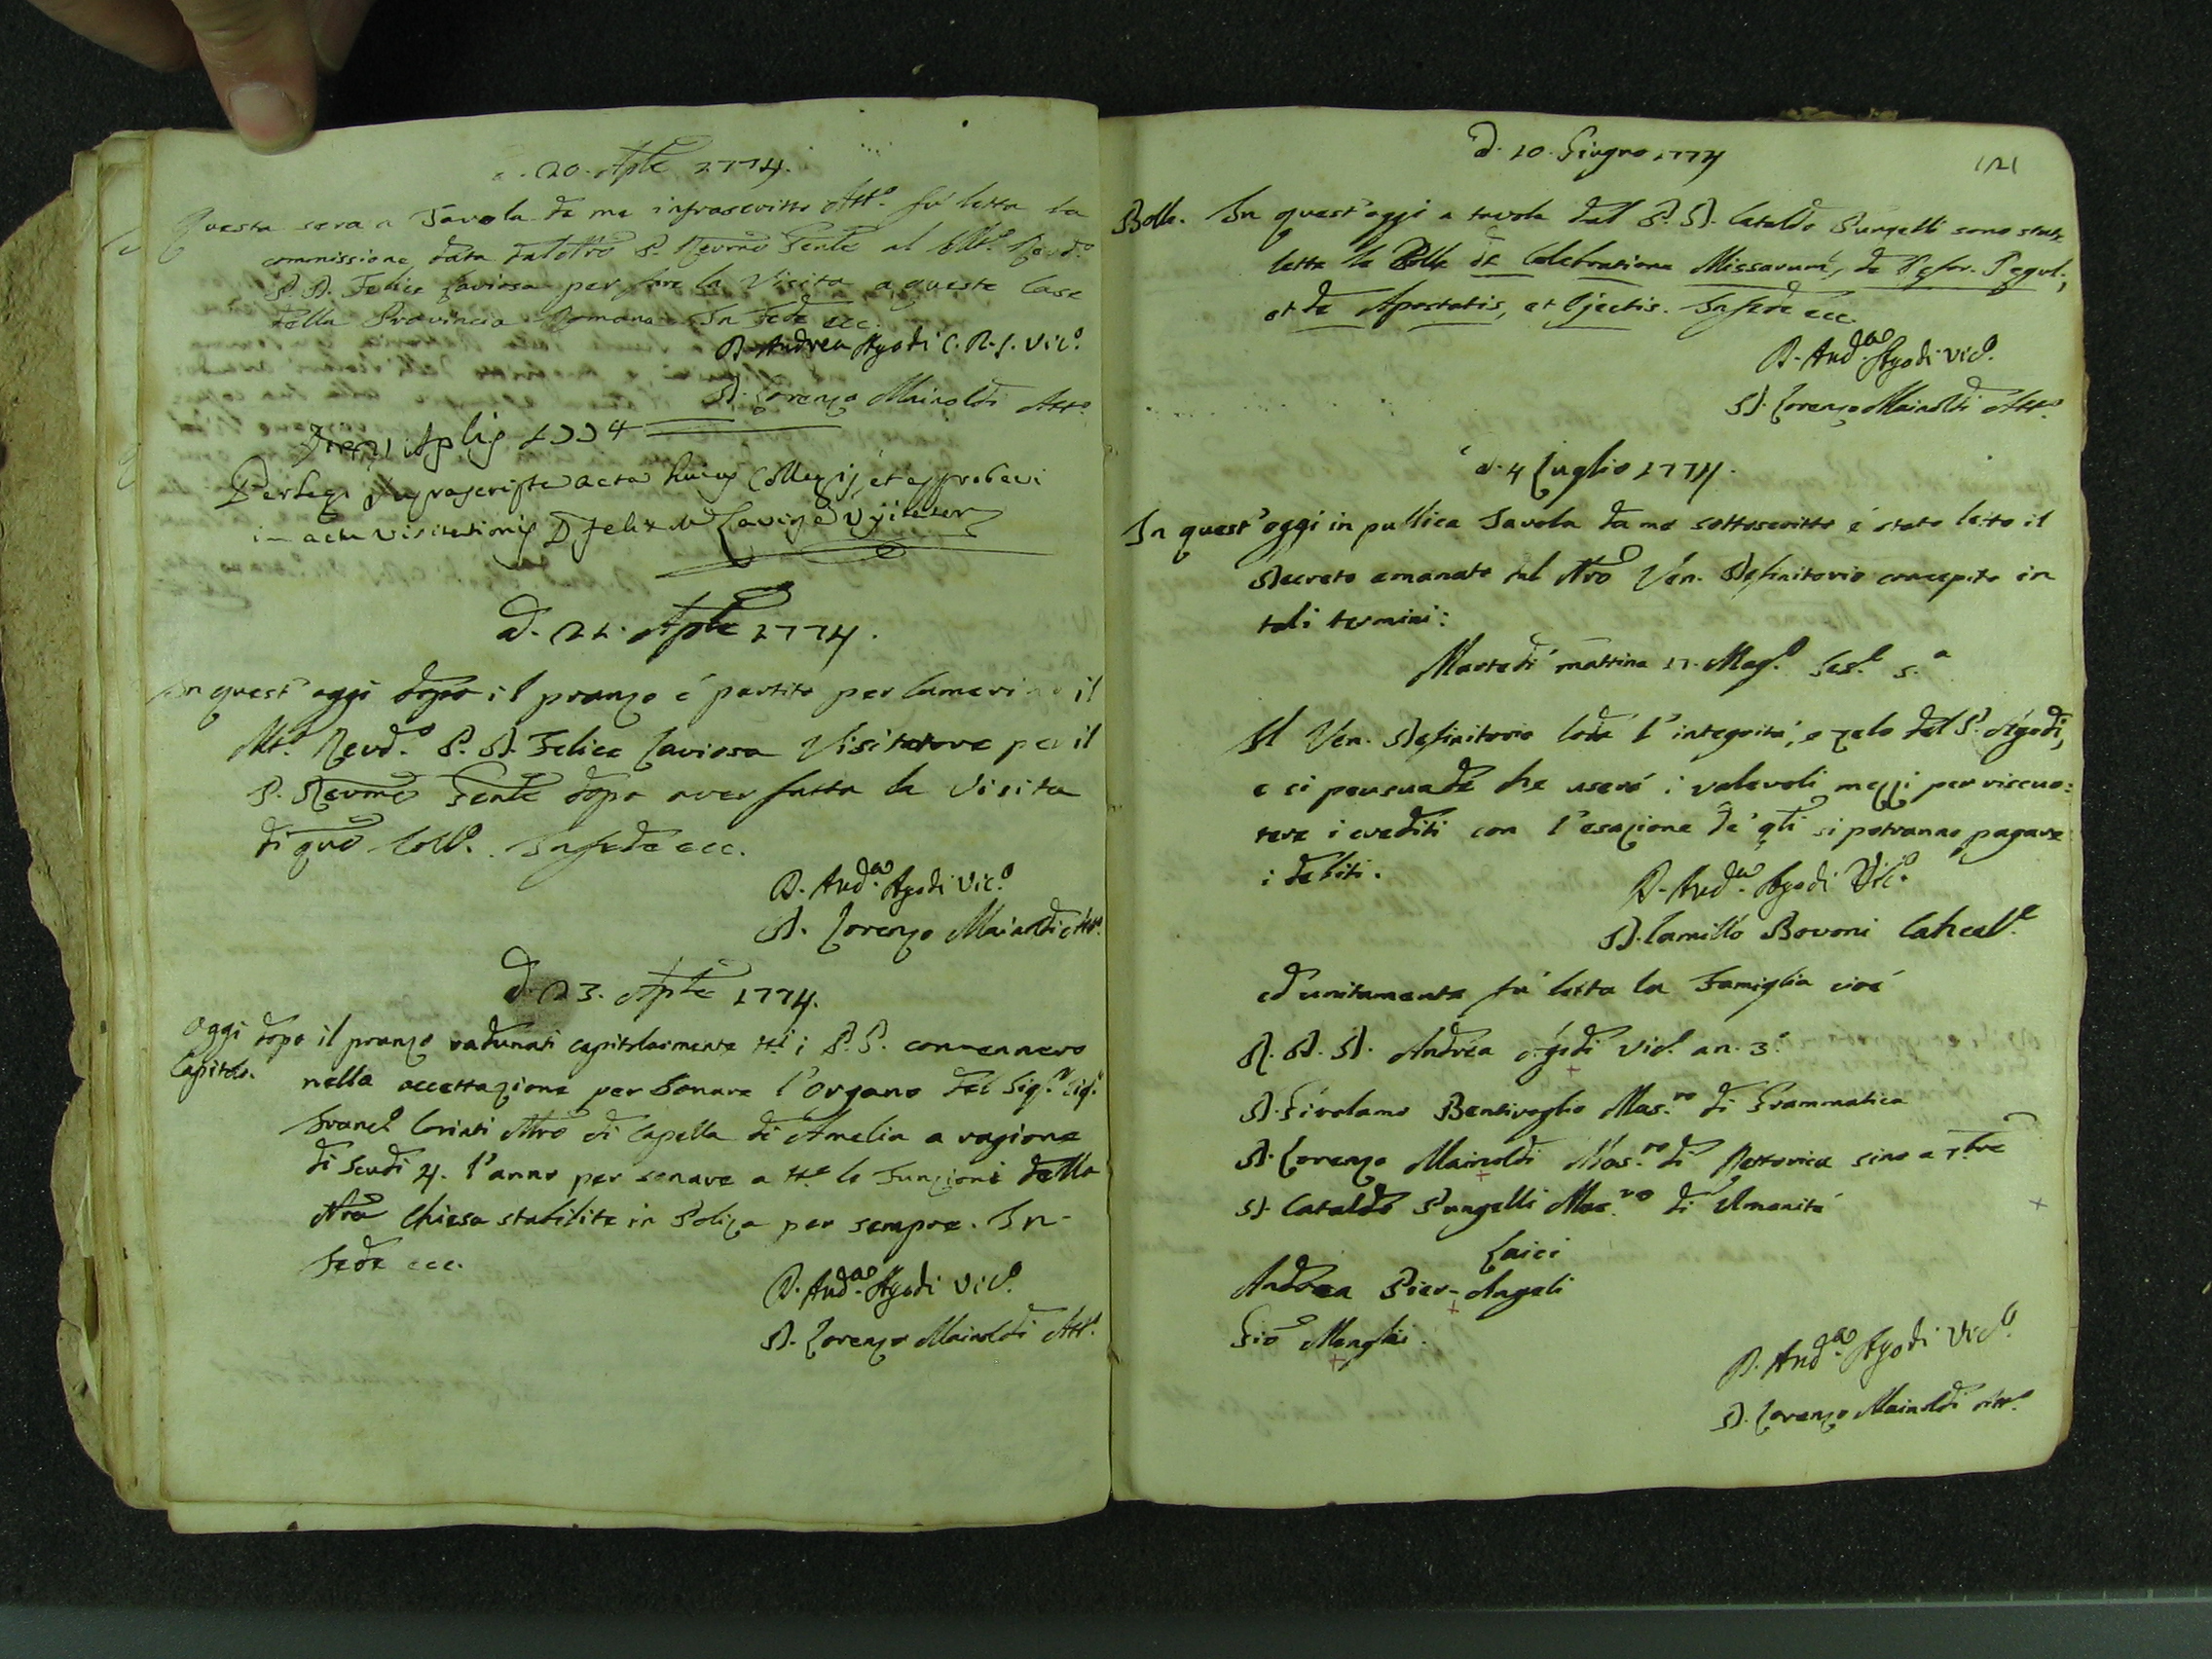 20. Aple 1774.
Questa sera a Tavola da me infrascritto Att.º fù letta la
commissione data dal Nro P. Revmo Gente al M.º Revd.º
P. D. Felice Laviosa per fare la Visita a queste Case
della Provincia Romana. In Fede ecc.
D. Andrea Agodi C. R. S. Vic.º
D. Lorenzo Mainoldi Att.º
Die 21 Aplis 1774
Perlegi suprascripta acta huius Collegij, et approbavi
in actu visitationis D Felix M.ª Laviosa Visitator
d. 21. Aple 1774.
In quest'oggi dopo il pranzo é partito per Camerino il
Mt.º Revd.º P. D. Felice Laviosa Visitatore per il
P. Revmo Gente dopo aver fatta la Visita
di qūo Coll.º. In fede ecc.
D. And.ª Agodi Vic.º
D. Lorenzo Mainoldi Att.º
d. 23. Aple 1774.
Oggi dopo il pranzo radunati capitolarmente tt.i i P.P. convennero
Capitolo.
nella accettazione per sonare l'Organo del Sig.r Sig.r
Franc.º Coriati Mro di Capella di Amelia a ragione
di Scudi 4. l'anno per sonare a tt.e le Funzioni della
Nra Chiesa stabilite in Poliza per sempre. In
Fede ecc.
D. And.ª Agodi Vic.º
D. Lorenzo Mainoldi Att.º
121
d. 10. Giugno 1774
Bolle. In quest'oggi a tavola dal P. D. Cataldo Pungelli sono state
lette le Bolle de Celebratione Missarum, de Refor. Regul.,
et de Apostatis, et Ejectis. In fede ecc.
D. And.ª Agodi Vic.º
D. Lorenzo Mainoldi Att.º
d. 4 Luglio 1774.
In quest'oggi in pubblica Tavola da me sottoscritto é stato letto il
Decreto emanato dal Nro Ven. Definitorio concepito in
tali termini:
Martedì mattina 17. Mag.º Ses.e 5.a
Il Ven. Definitorio loda l'integrità, e zelo del P. Agodi,
e si persuade che userà i valevoli mezzi per riscuo:
tere i crediti con l'esazione de' qli si potranno pagare
i debiti.
D. And.ª Agodi Vic.º
D. Camillo Bovoni Cancell.e
ed unitamente fù letta la Famiglia cioé
R. P. D. Andrea Agodi Vic.º an. 3.º
D. Girolamo Bentivoglio Mas.ro di Grammatica
D. Lorenzo Mainoldi Mas.ro di Rettorica sino a 7bre
D. Cataldo Pungelli Mas.ro di Umanità
Laici
Andrea Pier-Angeli
Gio Menghi.
D. And.ª Agodi Vic.º
D. Lorenzo Mainoldi Att.º